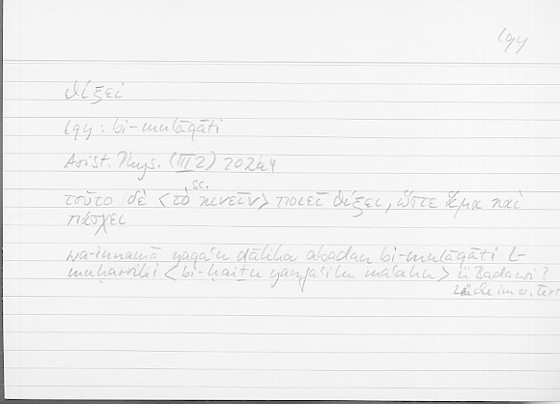 lqy
θίξει
lqy : bi-mulāqāti
Arist. Phys. (III 2) 202a7
sc.
τοῦτο δὲ <τὸ κινεῖν> ποιεῖ θίξει, ὥστε ἅμα καὶ
πάσχει
wa-innamā yaqaʿu ḏālika abadan bi-mulāqāti l-
muḥarriki <bi-ḥaiṯu yanfaʿilu maʿahu> Badawī?
Lücke im